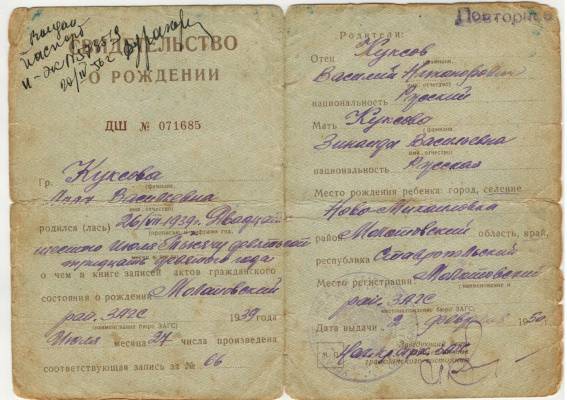 СВИДЕТЕЛЬСТВО
О РОЖДЕНИИ
ДШ № 071685
Гр. Куксова
(фамилия,
Васильевна
имя, отчество)
родился (лась) 26/VII 1939 г. Двадцать
(прописью и цифрами год,
шестого июля Тысяча девятьсот
тридцать девятого года
о чем в книге записей актов гражданского
состояния о рождении Молотовский
рай. ЗАГС 1939 года
(наименование бюро ЗАГС)
Июля месяца 27 числа произведена
соответствующая запись за № 66
Повторное
Родители:
Отец Куксов
(фамилия,
Василий Никанорович
имя, отчество)
национальность Русский
Мать Куксова
(фамилия
Зинаида Васильевна
имя, отчество)
национальность Русская
Место рождения ребенка: город, селение
Ново-Михайловка
район Молотовский область, край,
республика Ставропольский
Место регистрации Молотовский
(наименование и
рай. ЗАГС
местонахождение бюро ЗАГС)
Дата выдачи 2 февраля 1950
М. П.
Заведующий
гражданского состояния